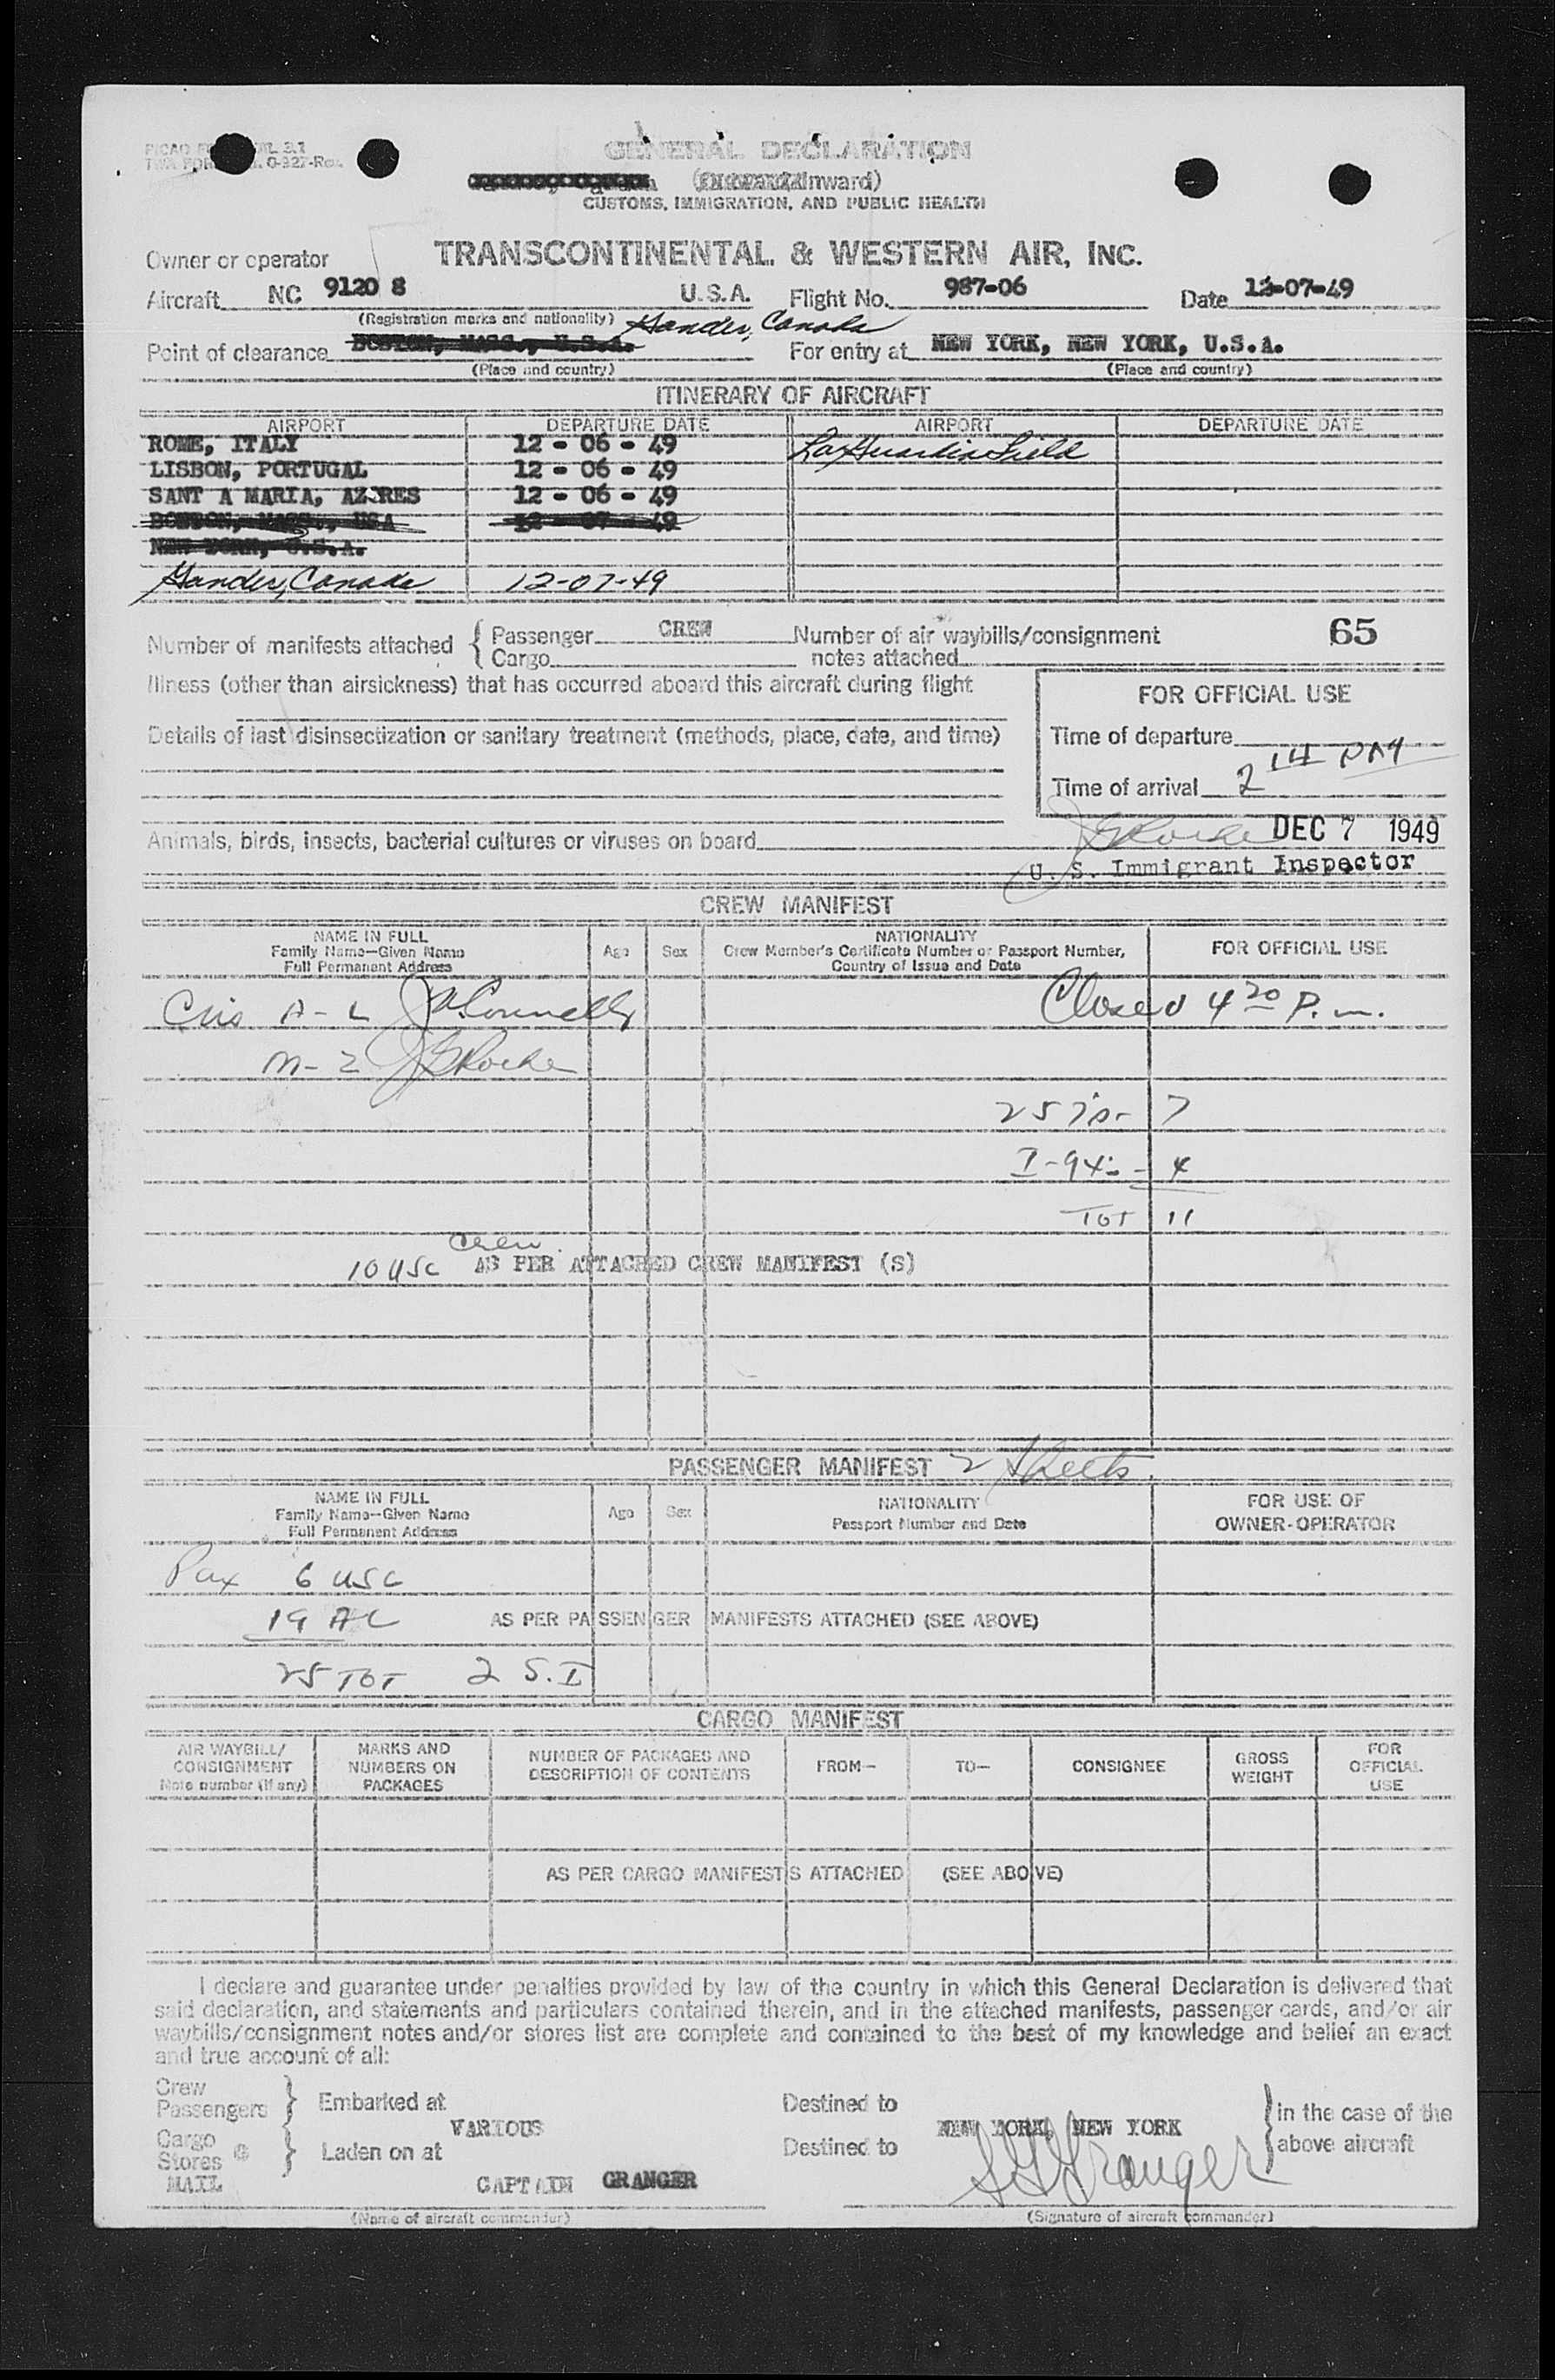 GENERAL DECLARATION
Inward)
CUSTOMS, IMMIGRATION, AND PUBLIC HEALTH
Owner or operator TRANSCONTINENTAL & WESTERN AIR, INC.
Aircraft NC 9120 8 U.S.A. Flight No. 987-06 Date 12-07-49
(Registration marks and nationality)
Gander, Canada
Point of clearance BOSTON, MASS., U.S.A. For entry at NEW YORK, NEW YORK, U.S.A.
(Place and country) (Place and country)
ITINERARY OF AIRCRAFT
AIRPORT DEPARTURE DATE AIRPORT DEPARTURE DATE
ROME, ITALY 12 - 06 - 49 LaGuardia Field
LISBON, PORTUGAL 12 - 06 - 49
SANT A MARIA, AZORES 12 - 06 - 49
BOSTON, MASS., USA 12 - 07 - 49
NEW YORK, U.S.A.
Gander, Canada 12-07-49
Number of manifests attached { Passenger CREW Number of air waybills/consignment 65
Cargo notes attached
Illness (other than airsickness) that has occurred aboard this aircraft during flight
FOR OFFICIAL USE
Details of last disinsectization or sanitary treatment (methods, place, date, and time)
Time of departure
Time of arrival 2 14 PM
Animals, birds, insects, bacterial cultures or viruses on board
DEC 7 1949
U. S. Immigrant Inspector
CREW MANIFEST
NAME IN FULL
Family Name—Given Name
Full Permanent Address
Age Sex
NATIONALITY
Crew Member's Certificate Number or Passport Number,
Country of Issue and Date
FOR OFFICIAL USE
A - L Closed 4 20 P.m.
M - Z
7
I-94 - 4
TOT 11
Crew
10 USC AS PER ATTACHED CREW MANIFEST (S)
PASSENGER MANIFEST 2 Sheets.
NAME IN FULL
Family Name—Given Name
Full Permanent Address
Age Sex
NATIONALITY
Passport Number and Date
FOR USE OF
OWNER-OPERATOR
Pax 6 USC
19 AL AS PER PASSENGER MANIFESTS ATTACHED (SEE ABOVE)
25 TOT 2 S.I
CARGO MANIFEST
AIR WAYBILL/
CONSIGNMENT
Note number (if any)
MARKS AND
NUMBERS ON
PACKAGES
NUMBER OF PACKAGES AND
DESCRIPTION OF CONTENTS
FROM—
TO—
CONSIGNEE
GROSS
WEIGHT
FOR
OFFICIAL
USE
AS PER CARGO MANIFESTS ATTACHED (SEE ABOVE)
I declare and guarantee under penalties provided by law of the country in which this General Declaration is delivered that
said declaration, and statements and particulars contained therein, and in the attached manifests, passenger cards, and/or air
waybills/consignment notes and/or stores list are complete and contained to the best of my knowledge and belief an exact
and true account of all:
Crew
Passengers } Embarked at Destined to } in the case of the
VARIOUS NEW YORK, NEW YORK
Cargo
Stores } Laden on at Destined to above aircraft
MAIL CAPTAIN GRANGER
(Name of aircraft commander) (Signature of aircraft commander)